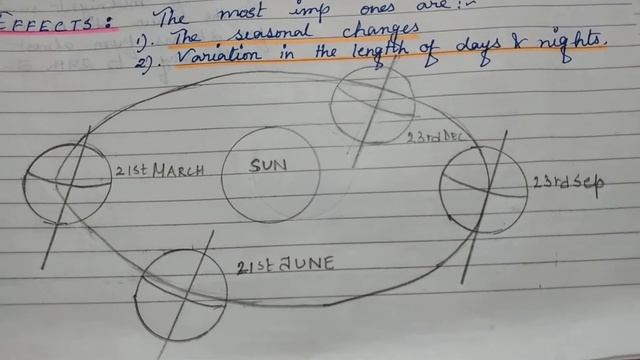 EFFECTS: The most imp ones are:-
1). The seasonal changes
2). Variation in the length of days & nights.
23rd DEC
21st MARCH
SUN
23rd Sep
21st JUNE